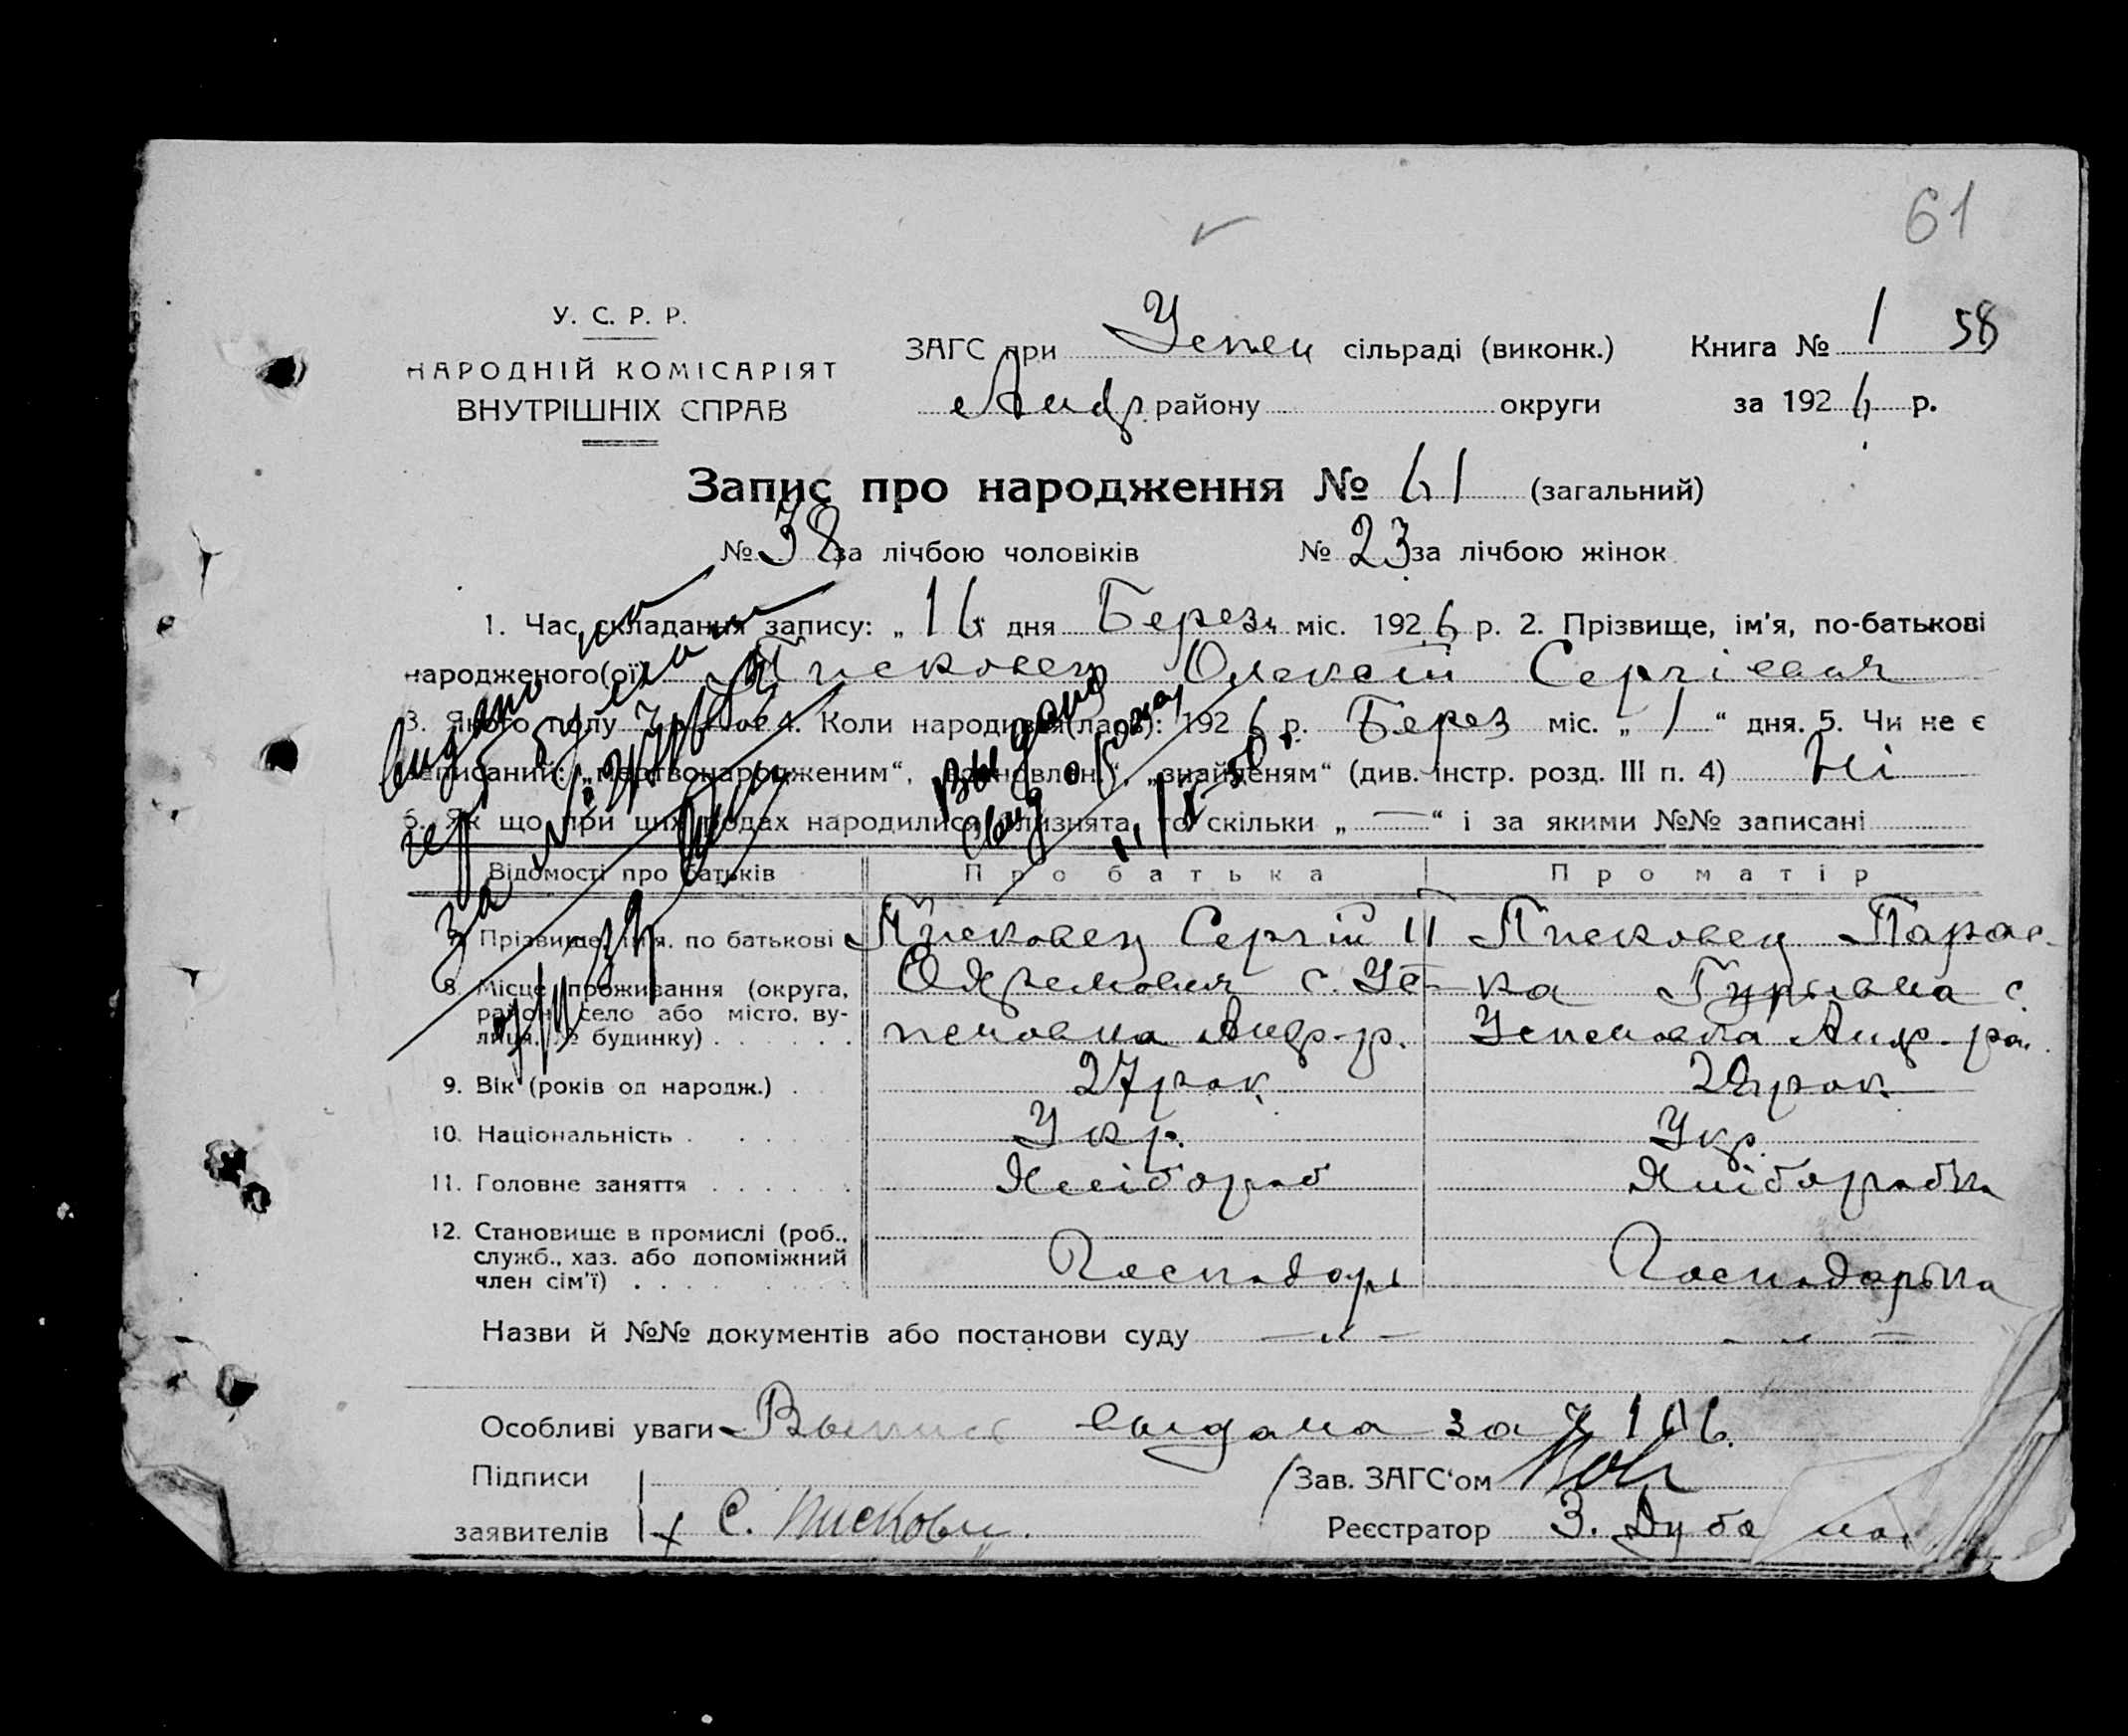 61
У. С. Р. Р.
НАРОДНІЙ КОМІСАРІЯТ
ВНУТРІШНІХ СПРАВ
ЗАГС при Успен сільраді (виконк.)
Андр. району округи
Книга № 1 58
за 1926 р.
Запис про народження № 61 (загальний)
№ 38 за лічбою чоловіків № 23 за лічбою жінок
1. Час складання запису: „16“ дня Берез. міс. 1926 р. 2. Прізвище, ім'я, по-батькові
народженого(ої) Писковец Олексій Сергієвич
3. Якого полу 4. Коли народився(лась): 1926 р. Берез міс. „1“ дня. 5. Чи не є
записаний: „мертвонародженим“, „знайденям“ (див. інстр. розд. III п. 4) Ні
6. Як що при цих родах народилися близнята, то скільки „—“ і за якими №№ записані
Видано
Выдано
Відомості про батьків Про батька Про матір
7. Прізвище, ім'я, по батькові Писковец Сергій Писковец Парас-
8. Місце проживання (округа, с. Ус- ка с.
район, село або місто, ву-
лиця, № будинку) пеновка Андр-р. Успеновка Андр. ра.
9. Вік (років од народж.) 27 рок. рок.
10. Національність Укр. Укр.
11. Головне заняття Хлібороб Хліборобка
12. Становище в промислі (роб.,
служб., хаз. або допоміжний
член сім'ї) Господарь Господарька
Назви й №№ документів або постанови суду
Особливі уваги Выпись выдана за № 106.
Підписи
заявителів С. Písковец
Зав. ЗАГС'ом
Реєстратор З.